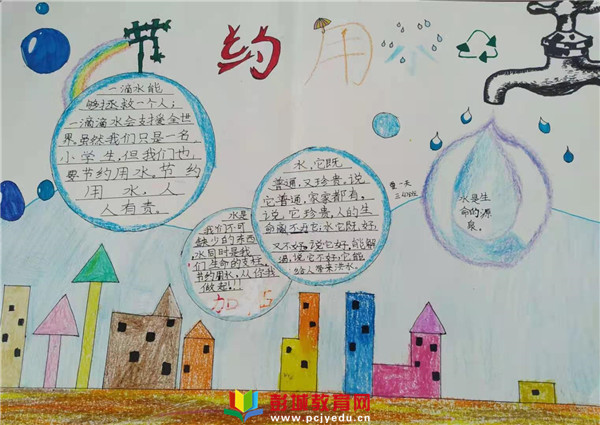 节约用水
一滴水能
够拯救一个人；
一滴滴水会支援全世
界.虽然我们只是一名
小学生,但我们也
要节约用水.节约
用水,人
人有责。
水是
我们不可
缺少的东西
水同时是我
们生命的支柱,
节约用水,从你我
做起!!!
加
水,它既
普通,又珍贵,说
它普通,家家都有,
说,它珍贵,人的生
命离不开它;水它既好,
又不好,说它好,能解
渴,说它不好,它能
给人带来洪水.
水是生
命的源
泉。
彭城教育网
www.pcjyedu.cn